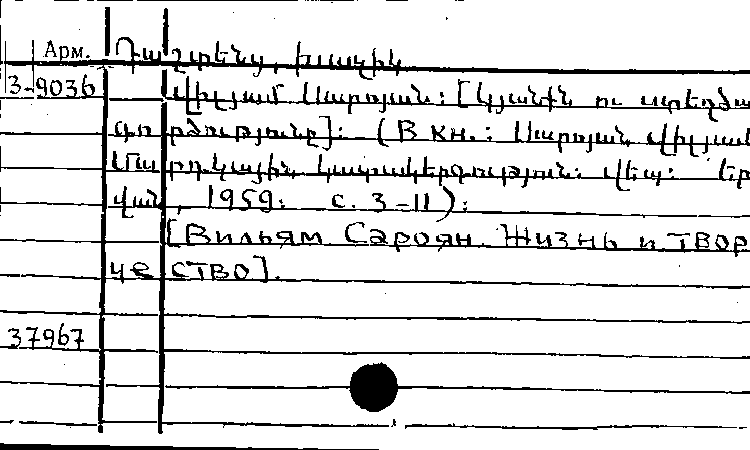 Арм. Դաշտենց, Խաչիկ
3-9036 Վիլյամ Սարոյան: [Կյանքն ու ստեղծա
գործությունը]: (В кн.: Սարոյան, Վիլյամ
Մարդկային կատակերգություն: Վեպ: Եր
վան, 1959: с. 3-11):
[Вильям Сароян. Жизнь и твор
чество].
37967